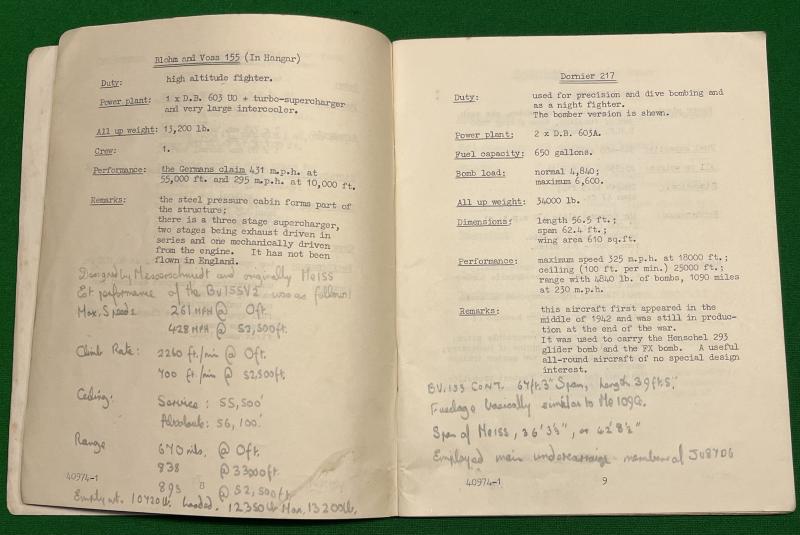 Blohm and Voss 155 (In Hangar)
Duty: high altitude fighter.
Power plant: 1 x D.B. 603 U0 + turbo-supercharger
and very large intercooler.
All up weight: 13,200 lb.
Crew: 1.
Performance: the Germans claim 431 m.p.h. at
55,000 ft. and 295 m.p.h. at 10,000 ft.
Remarks: the steel pressure cabin forms part of
the structure;
there is a three stage supercharger,
two stages being exhaust driven in
series and one mechanically driven
from the engine. It has not been
flown in England.
Designed by Messerschmidt and originally Me155
Est performance of the BV155V2 was as follows:
Max. Speed: 261 MPH @ 0ft.
428 MPH @ 52,500ft.
Climb Rate: 2260 ft./min @ 0ft.
700 ft./min @ 52,500ft.
Ceiling: Service: 55,500'
Absolute: 56,100'
Range 670 mls. @ 0ft.
838 @ 33000ft.
895 @ 52,500ft.
40974-1 8
Empty wt. 10720lb. Loaded. 12350lb Max. 13200lb.
Dornier 217
Duty: used for precision and dive bombing and
as a night fighter.
The bomber version is shewn.
Power plant: 2 x D.B. 603A.
Fuel capacity: 650 gallons.
Bomb load: normal 4,840;
maximum 6,600.
All up weight: 34000 lb.
Dimensions: length 56.5 ft.;
span 62.4 ft.;
wing area 610 sq.ft.
Performance: maximum speed 325 m.p.h. at 18000 ft.;
ceiling (100 ft. per min.) 25000 ft.;
range with 4840 lb. of bombs, 1090 miles
at 230 m.p.h.
Remarks: this aircraft first appeared in the
middle of 1942 and was still in produc-
tion at the end of the war.
It was used to carry the Henschel 293
glider bomb and the FX bomb. A useful
all-round aircraft of no special design
interest.
BV.155 CONT. 67ft.3" Span, Length 39ft.5".
Fuselage basically similar to Me109G.
Span of Me155, 36' 3½", or 42' 8½"
Employed main undercarriage members of JU87D6
40974-1 9